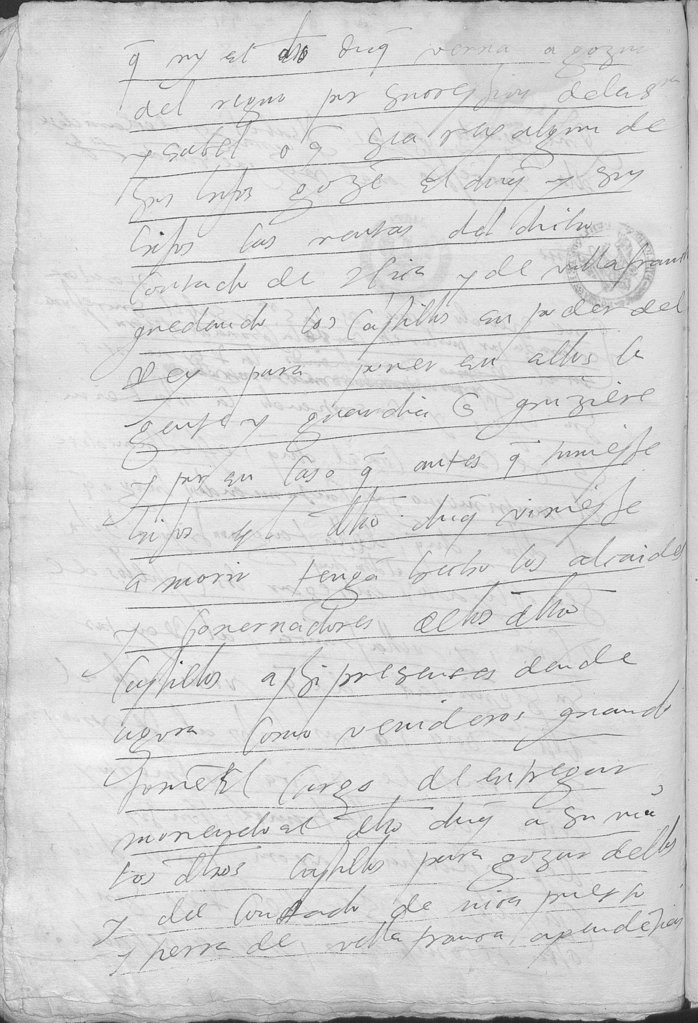 q̃ ny el dho duq̃ verna a gozar
del regno por suçession dela sra
ysabel o q̃ sea rey alguno de
sus hijos goze el duq̃ y sus
hijos las rentas del dicho
Contado de Niça y de villa franca
quedando los Castillos en poder del
Rey para poner en ellos la
gente y guardia q̃ quiziere
y por en Caso q̃ antes q̃ tuviesse
hijos el dho duq̃ viniesse
a morir tenga hecho los alcaides
y Governadores delos dhos
Castillos assi presentes dende
agora Como venideros quando
tomẽ El Cargo de entregar
moriendo el dho duq̃ a su mag
Los dhos Castillos para gozar dellos
y del Contado de niça puerto
y tierra de villa franca apendeçias